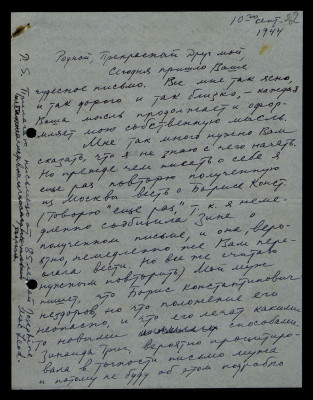 10го сент. 22
1944
Родной, Прекрасный Друг мой,
Сегодня пришло Ваше
чудесное письмо. Все мне так ясно,
и так дорого и так близко, – каждая
Ваша мысль продолжает и офор-
мляет мою собственную мысль.
Мне так много нужно Вам
сказать, что я не знаю с чего начать.
Но прежде чем писать о себе я
еще раз повторю полученную
из Москвы весть о Борисе Конст.
(Говорю "еще раз," т. к. я неме-
дленно сообщила Зине о
полученном письме, и она, веро-
ятно, немедленно же Вам пере-
слала вести, но все же считаю
нужным повторить) Мой муж
пишет, что Борис Константинович
нездоров, но что положение его
неопасно, и что его лечат какими-
то новыми способами.
Зинаида Григ. вероятно процитиро-
вала в точности письмо мужа
и потому не буду об этом подробно
P. S.